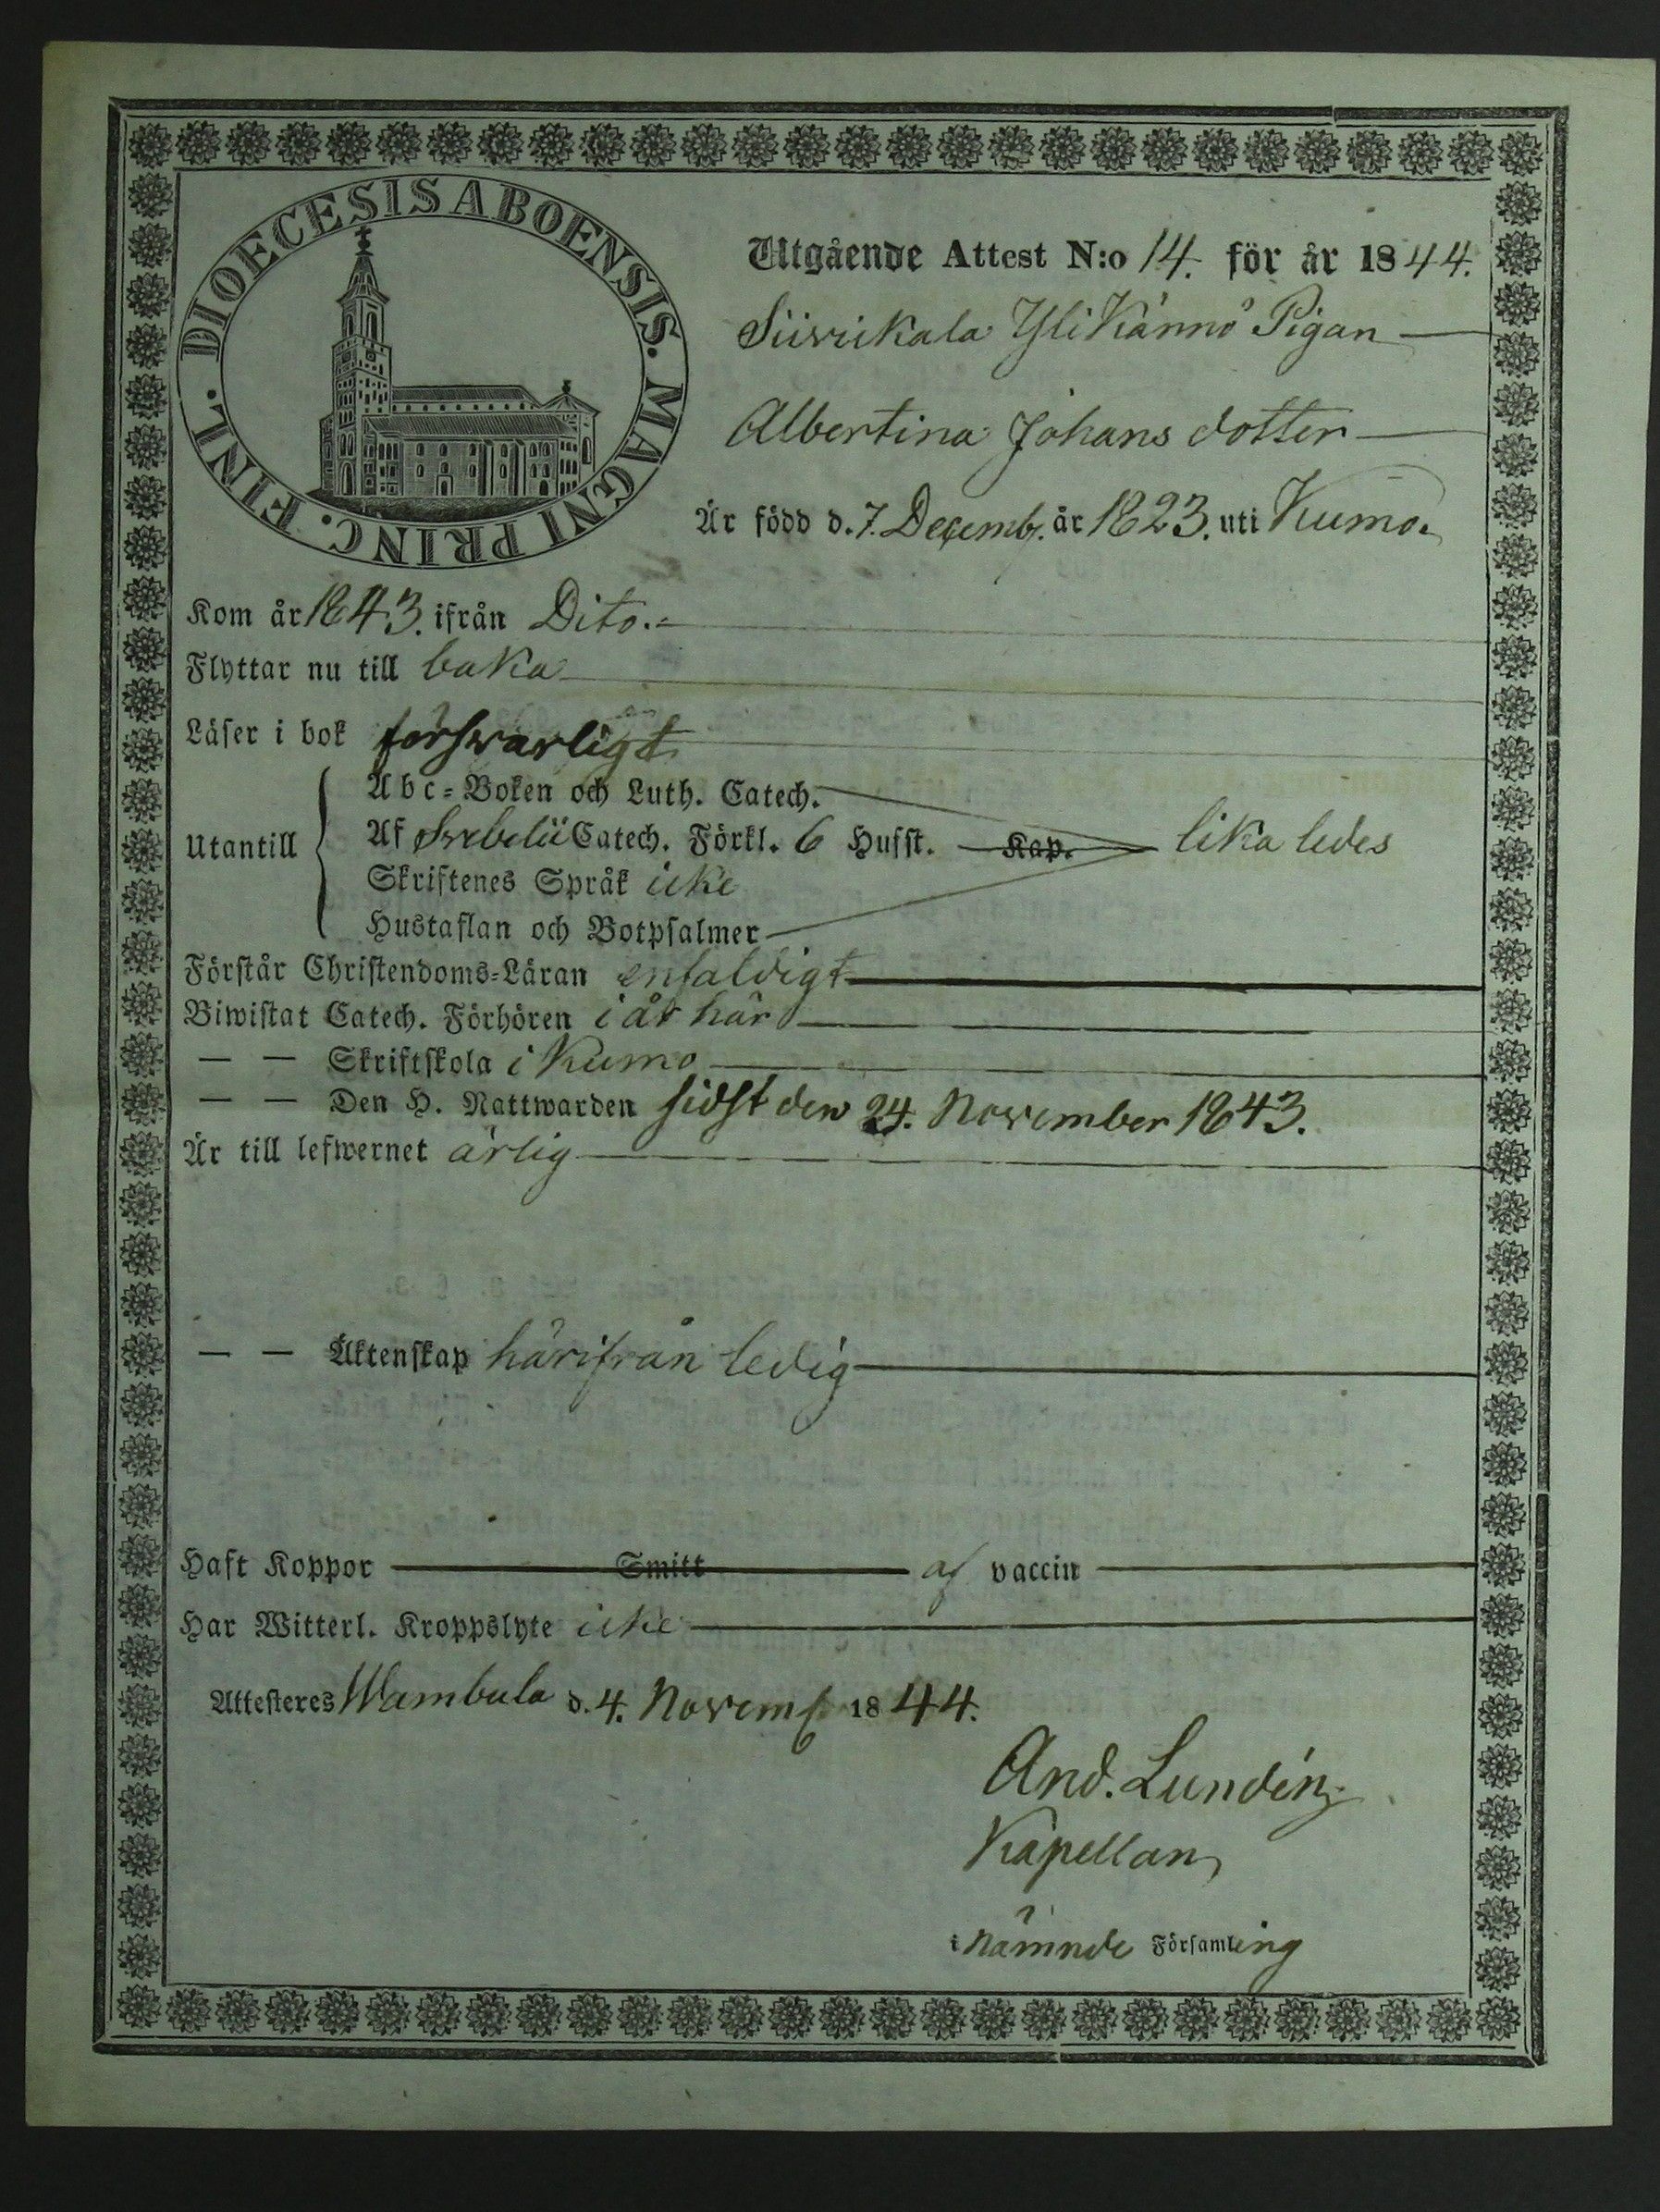 DIOECESIS ABOENSIS. MAGNI PRINC. FINL.
Utgående Attest N:o 14. för år 1844.
Siivikala Yli Kännö Pigan
Albertina Johans dotter
Är född d. 7. Decemb. år 1823. uti Kumo.
Kom år 1843. ifrån Dito.
Flyttar nu till baka
Läser i bok förswarligt
Abc-Boken och Luth. Catech.
Utantill Af Svebelii Catech. Förkl. 6 Hufst. Kap. lika ledes
Skriftenes Språk icke
Hustaflan och Botpsalmer
Förstår Christendoms-Läran enfaldigt
Biwistat Catech. Förhören i år här
— — Skriftskola i Kumo
— — Den H. Nattwarden sidst den 24. November 1843.
Är till lefwernet ärlig
— — Äktenskap härifrån ledig
Haft Koppor Smitt af vaccin
Har Witterl. Kroppslyte icke
Attesteres Wambula d. 4. Novemb. 1844.
And. Lundén
Kapellan
i nämnde Församling